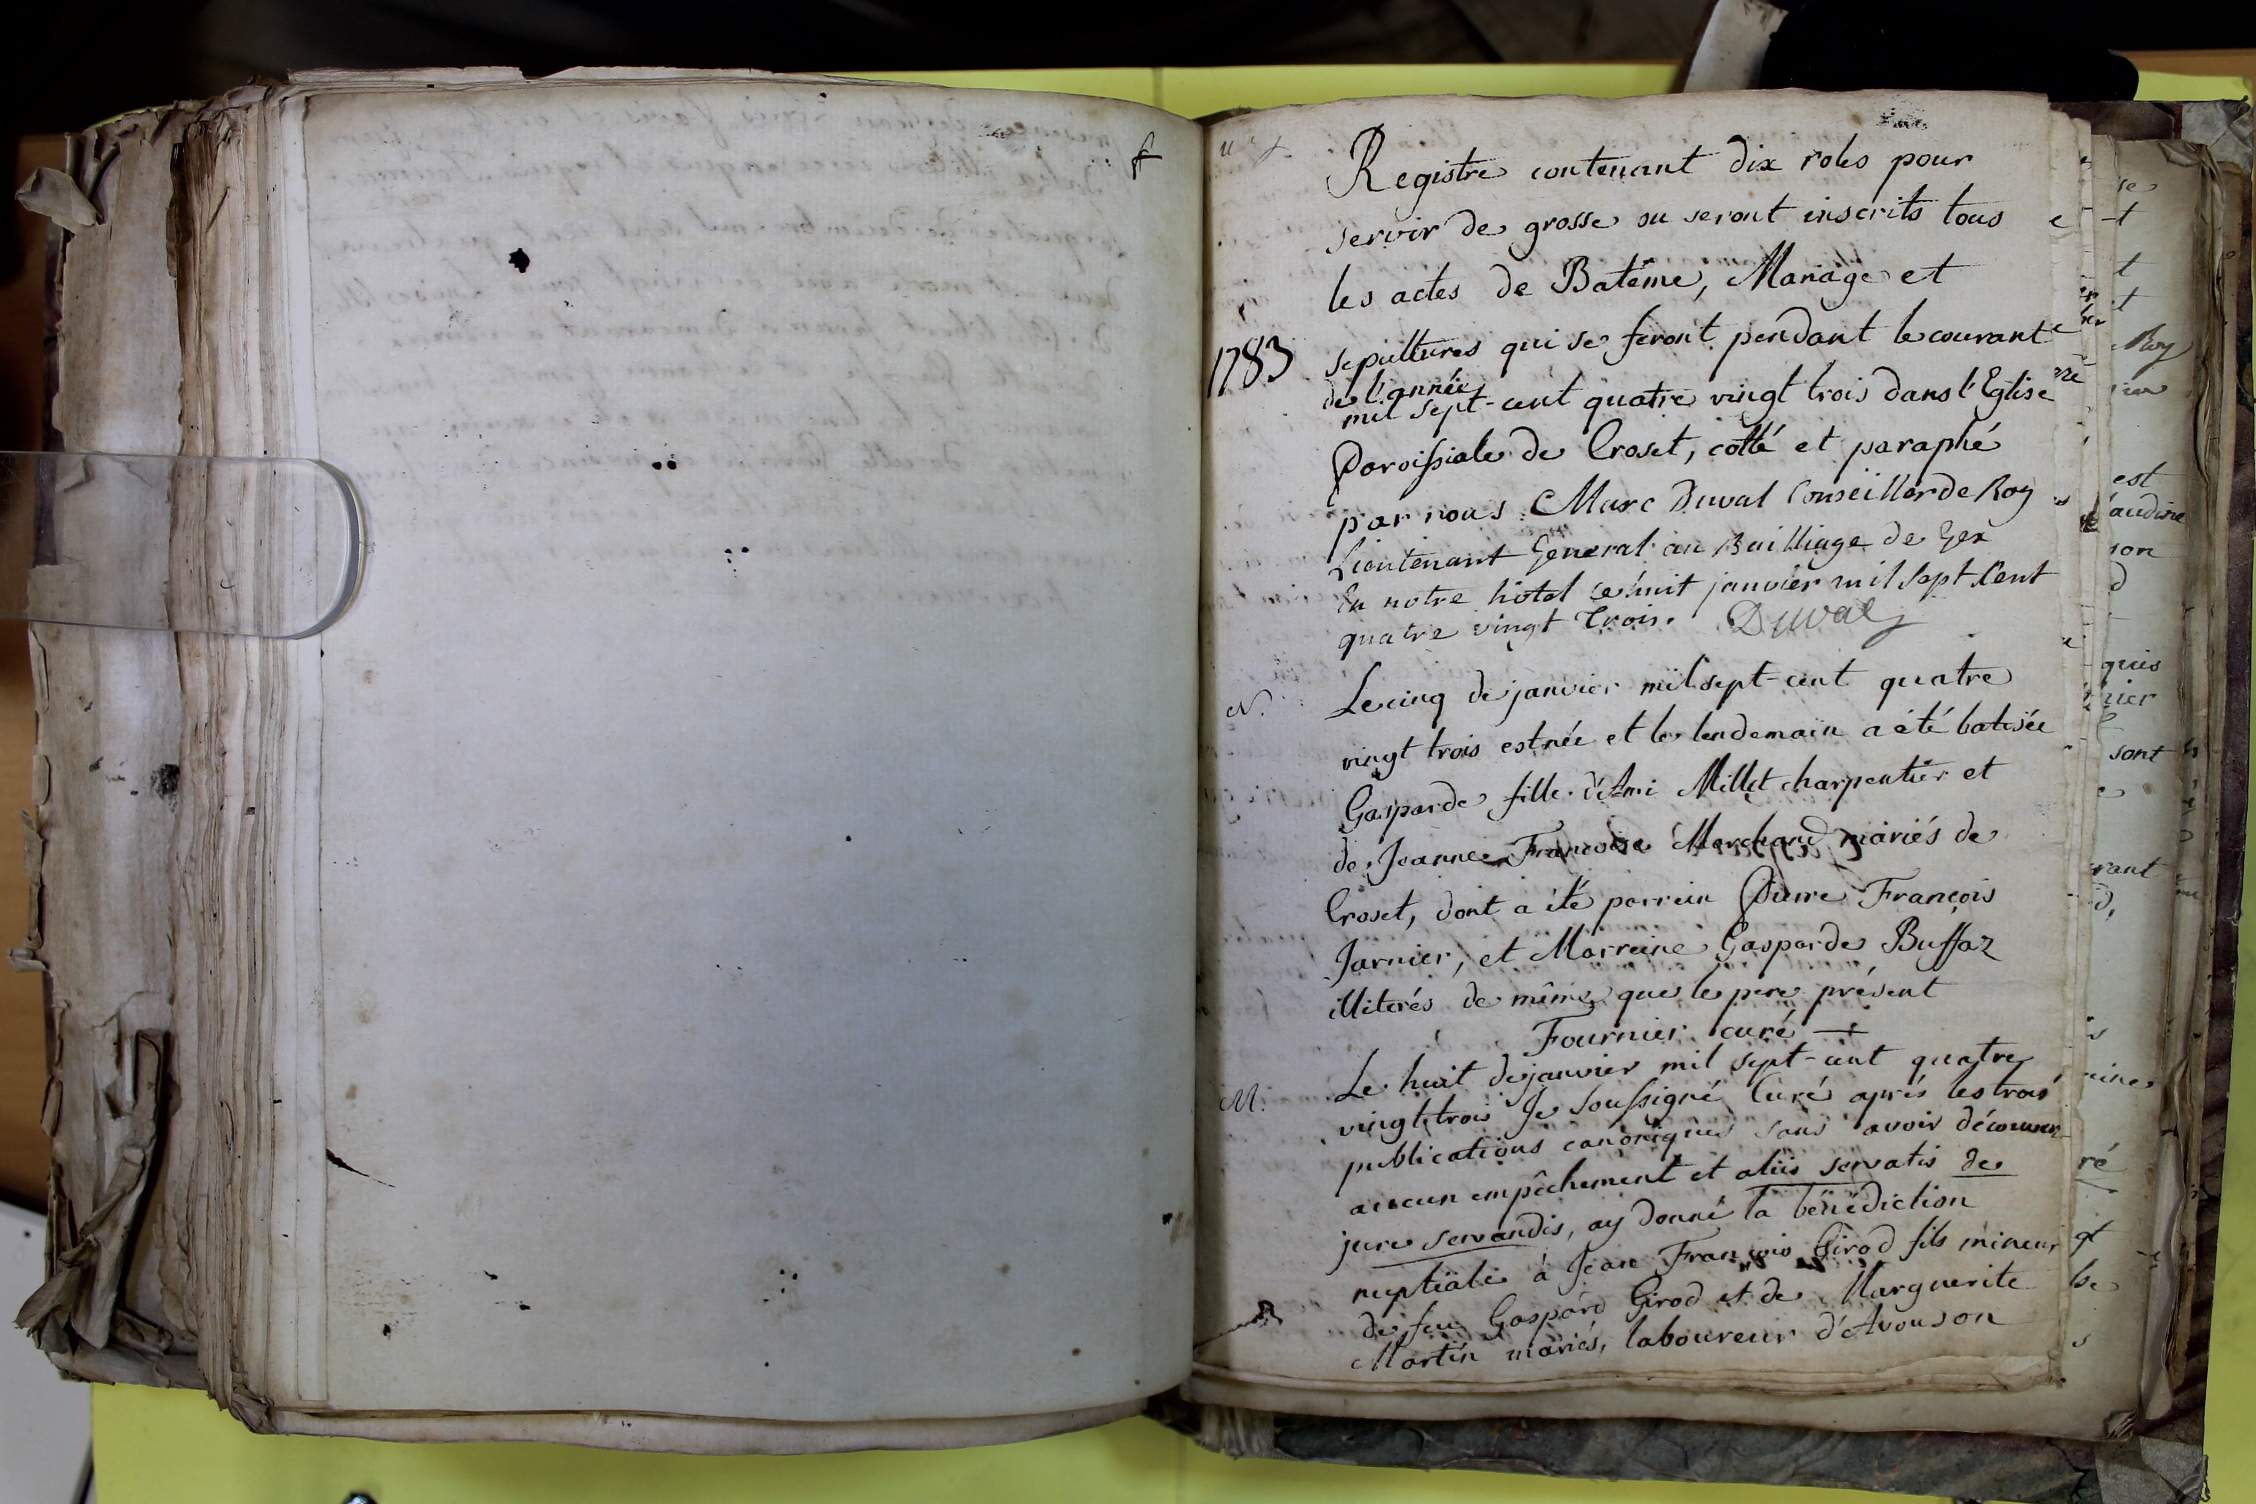 Registre contenant dix roles pour
servir de grosse ou seront inscrits tous
les actes de Batême, Mariage et
sepultures qui se feront pendant le courant
1783
de l'année
mil sept-cent quatre vingt trois dans l'Eglise
Paroissiale de Croset, cotté et paraphé
par nous Marc Duval Conseiller de Roy
Lieutenant General au Bailliage de Gex
En notre hôtel ce huit janvier mil sept Cent
quatre vingt trois. Duval
N.
Le cinq de janvier mil sept-cent quatre
vingt trois est née et le lendemain a été batisée
Gasparde fille d'Ami Millet charpentier et
de Jeanne Francoise Marchand mariés de
Croset, dont a été parrein Pierre François
Jarnier, et Marreine Gasparde Buffaz
illiterés de même que le pere présent
Fournier curé
M.
Le huit de janvier mil sept-cent quatre
vingt trois Je soussigné Curé aprés les trois
publications canoniques sans avoir découvert
aucun empêchement et aliis servatis de
jure servandis, ay donné la bénédiction
nuptiale à Jean François Girod fils mineur
de feu Gaspard Girod et de Marguerite
Martin mariés, laboureur d'Avouson